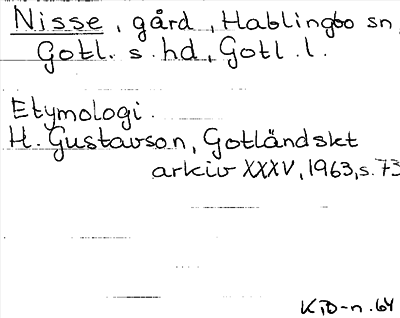 Nisse, gård, Hablingbo sn,
Gotl. s. hd, Gotl. l.
Etymologi.
H. Gustavson, Gotländskt
arkiv XXXV, 1963, s. 73
K,D-n. 64